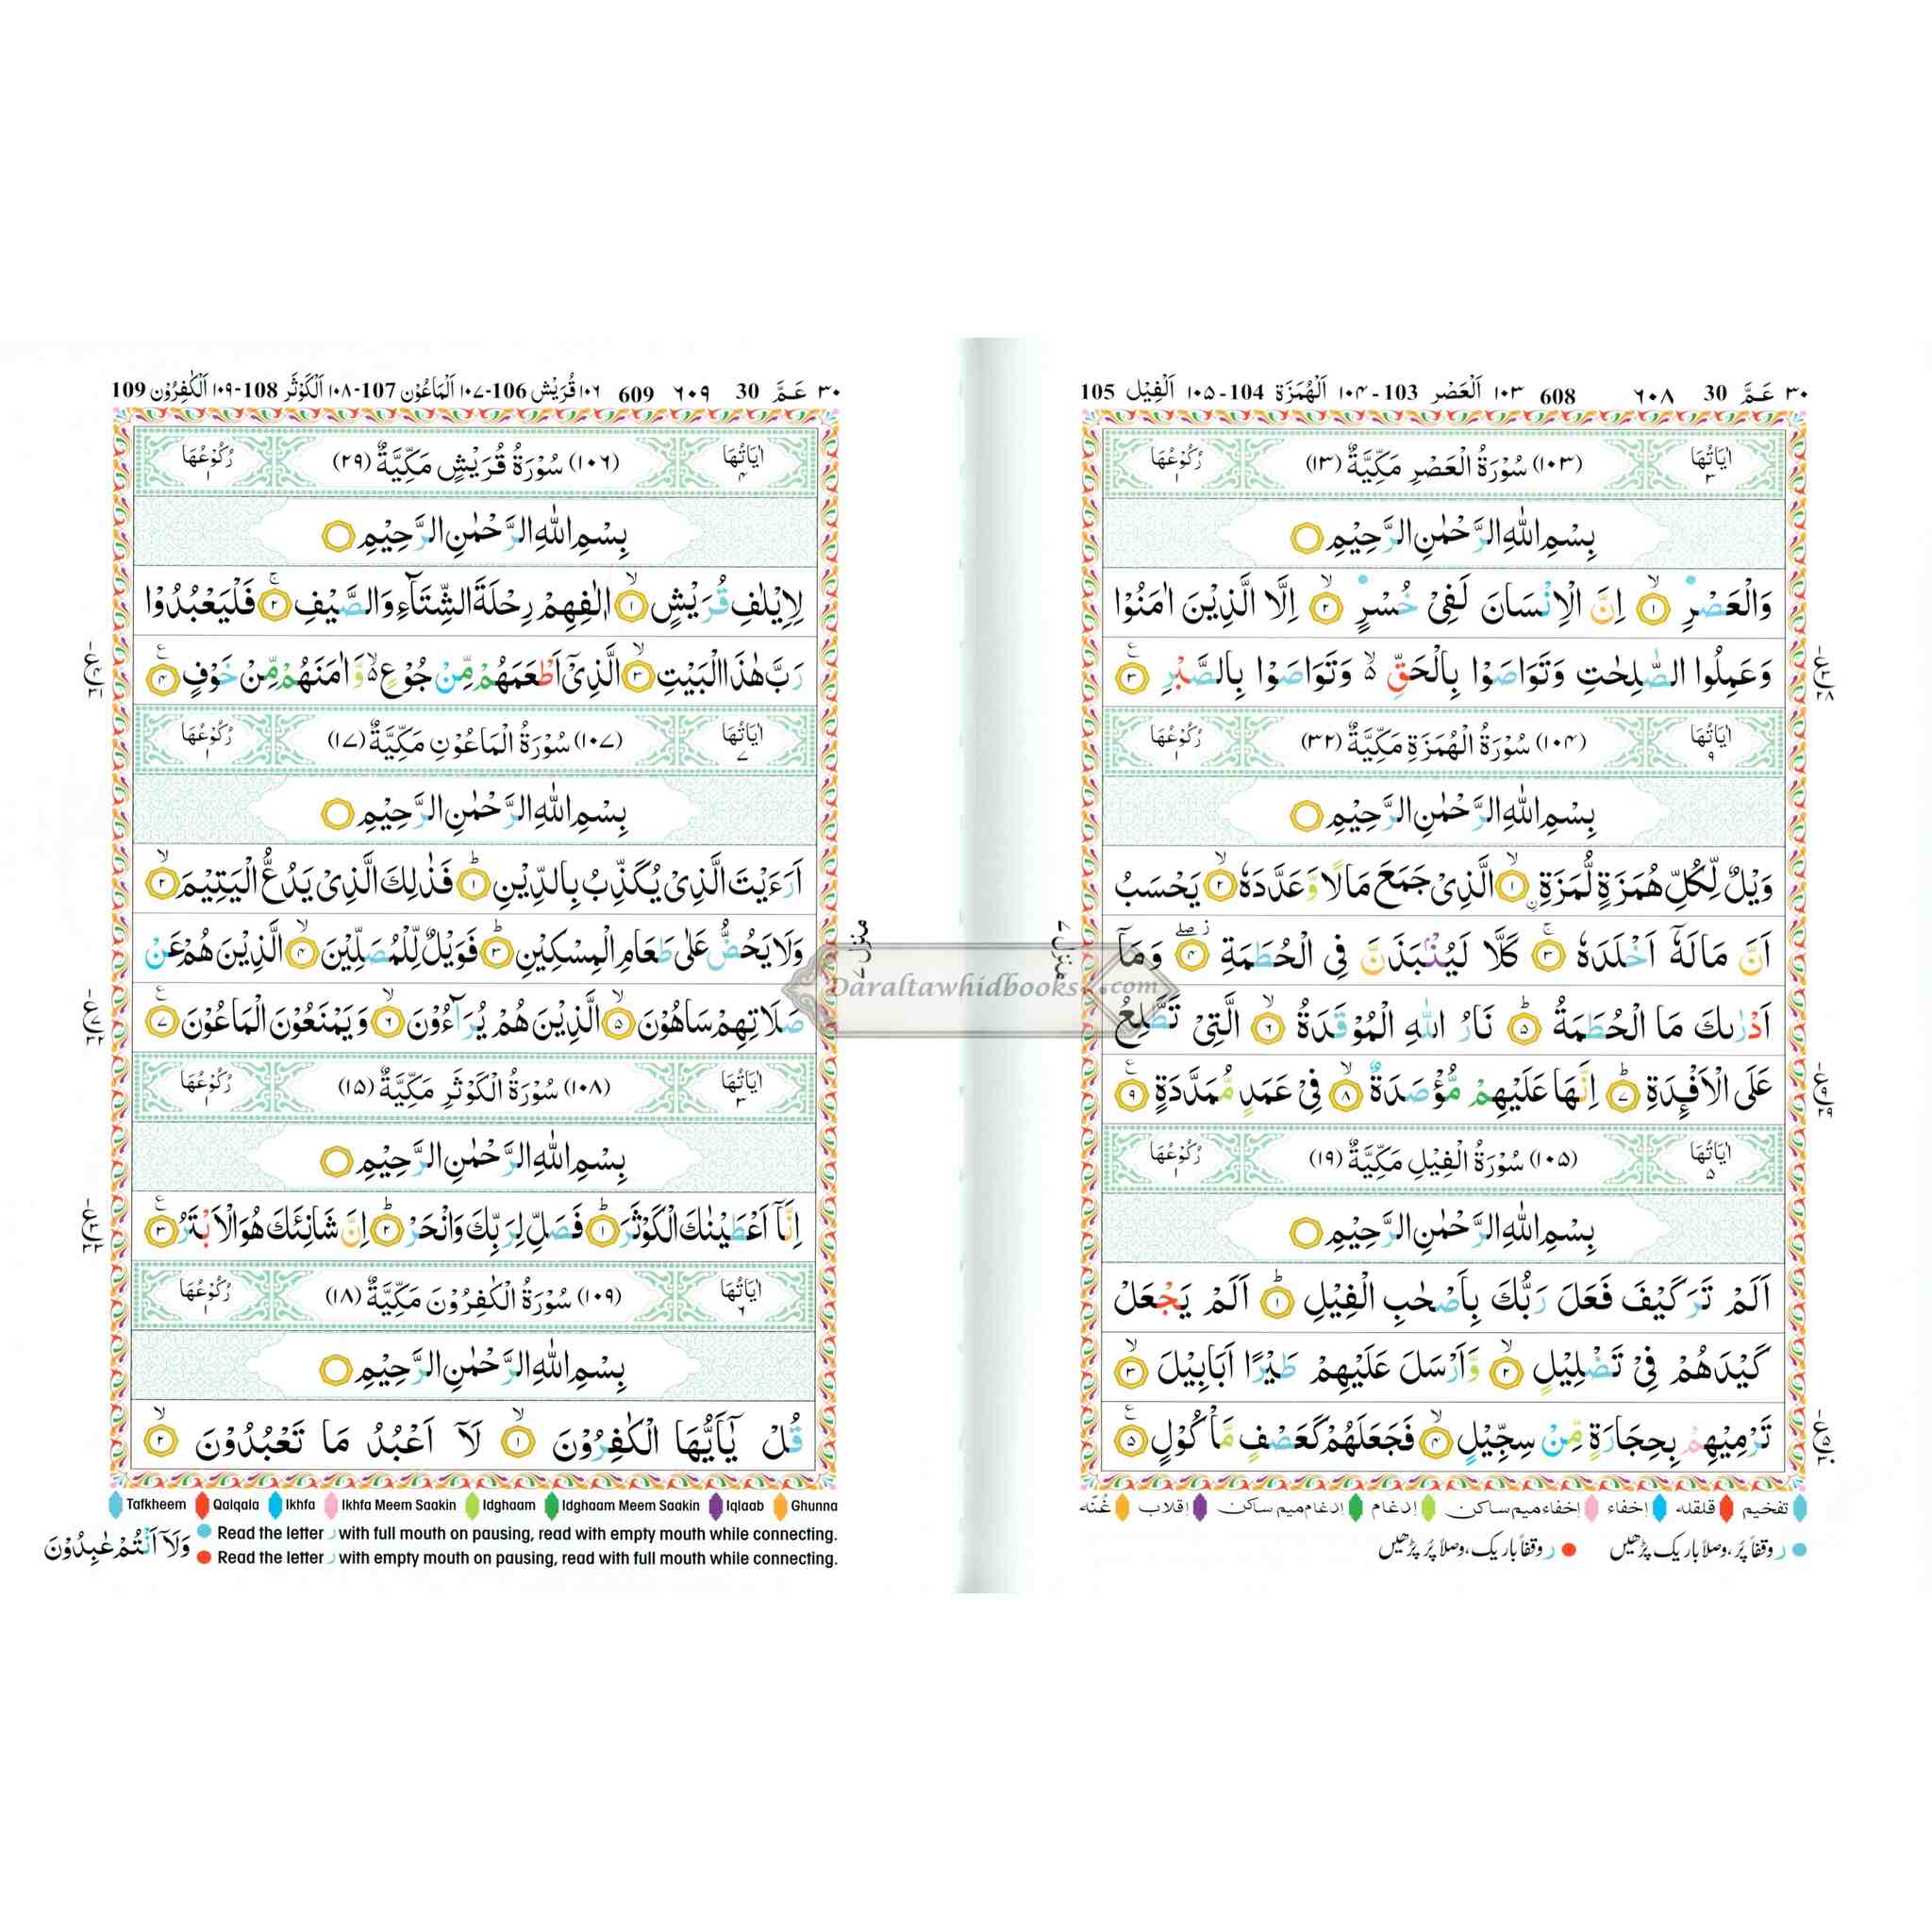 ٣٠ عَـمَّ 30 ٦٠٨ 608 ١٠٣ اَلْعَصْر 103-١٠٤ اَلْهُمَزَة 104-١٠٥ اَلْفِيْل 105
اٰيَاتُهَا ٣ (١٠٣) سُوْرَةُ الْعَصْرِ مَكِّيَّةٌ (١٣) رُكُوْعُهَا ١
بِسْمِ اللّٰهِ الرَّحْمٰنِ الرَّحِيْمِ
وَالْعَصْرِ ۙ ١ اِنَّ الْاِنْسَانَ لَفِيْ خُسْرٍ ۙ ٢ اِلَّا الَّذِيْنَ اٰمَنُوْا
وَعَمِلُوا الصّٰلِحٰتِ وَتَوَاصَوْا بِالْحَقِّ ۙ وَتَوَاصَوْا بِالصَّبْرِ ٣
اٰيَاتُهَا ٩ (١٠٤) سُوْرَةُ الْهُمَزَةِ مَكِّيَّةٌ (٣٢) رُكُوْعُهَا ١
بِسْمِ اللّٰهِ الرَّحْمٰنِ الرَّحِيْمِ
وَيْلٌ لِّكُلِّ هُمَزَةٍ لُّمَزَةِ ۙ ١ الَّذِيْ جَمَعَ مَالًا وَّعَدَّدَهٗ ۙ ٢ يَحْسَبُ
اَنَّ مَالَهٗٓ اَخْلَدَهٗ ۚ ٣ كَلَّا لَيُنْۢبَذَنَّ فِي الْحُطَمَةِ ٤ وَمَآ
اَدْرٰىكَ مَا الْحُطَمَةُ ؕ ٥ نَارُ اللّٰهِ الْمُوْقَدَةُ ۙ ٦ الَّتِيْ تَطَّلِعُ
عَلَى الْاَفْـِٕدَةِ ؕ ٧ اِنَّهَا عَلَيْهِمْ مُّؤْصَدَةٌ ۙ ٨ فِيْ عَمَدٍ مُّمَدَّدَةٍ ٩
اٰيَاتُهَا ٥ (١٠٥) سُوْرَةُ الْفِيْلِ مَكِّيَّةٌ (١٩) رُكُوْعُهَا ١
بِسْمِ اللّٰهِ الرَّحْمٰنِ الرَّحِيْمِ
اَلَمْ تَرَ كَيْفَ فَعَلَ رَبُّكَ بِاَصْحٰبِ الْفِيْلِ ؕ ١ اَلَمْ يَجْعَلْ
كَيْدَهُمْ فِيْ تَضْلِيْلٍ ۙ ٢ وَّاَرْسَلَ عَلَيْهِمْ طَيْرًا اَبَابِيْلَ ۙ ٣
تَرْمِيْهِمْ بِحِجَارَةٍ مِّنْ سِجِّيْلٍ ۙ ٤ فَجَعَلَهُمْ كَعَصْفٍ مَّاْكُوْلٍ ٥
تفخيم قلقله إخفاء إخفاء ميم ساكن إدغام إدغام ميم ساكن إقلاب غُنّه
ر وقفاً پُر، وصلاً باریک پڑھیں ر وقفاً باریک، وصلاً پُر پڑھیں
منزل ٧
Daraltawhidbooks.com
٣٠ عَـمَّ 30 ٦٠٩ 609 ١٠٦ قُرَيْش 106-١٠٧ اَلْمَاعُوْن 107-١٠٨ اَلْكَوْثَر 108-١٠٩ اَلْكٰفِرُوْن 109
اٰيَاتُهَا ٤ (١٠٦) سُوْرَةُ قُرَيْشٍ مَكِّيَّةٌ (٢٩) رُكُوْعُهَا ١
بِسْمِ اللّٰهِ الرَّحْمٰنِ الرَّحِيْمِ
لِاِيْلٰفِ قُرَيْشٍ ۙ ١ اٖلٰفِهِمْ رِحْلَةَ الشِّتَآءِ وَالصَّيْفِ ۚ ٢ فَلْيَعْبُدُوْا
رَبَّ هٰذَا الْبَيْتِ ۙ ٣ الَّذِيْٓ اَطْعَمَهُمْ مِّنْ جُوْعٍ ۙ وَّاٰمَنَهُمْ مِّنْ خَوْفٍ ٤
اٰيَاتُهَا ٧ (١٠٧) سُوْرَةُ الْمَاعُوْنِ مَكِّيَّةٌ (١٧) رُكُوْعُهَا ١
بِسْمِ اللّٰهِ الرَّحْمٰنِ الرَّحِيْمِ
اَرَءَيْتَ الَّذِيْ يُكَذِّبُ بِالدِّيْنِ ؕ ١ فَذٰلِكَ الَّذِيْ يَدُعُّ الْيَتِيْمَ ۙ ٢
وَلَا يَحُضُّ عَلٰى طَعَامِ الْمِسْكِيْنِ ؕ ٣ فَوَيْلٌ لِّلْمُصَلِّيْنَ ۙ ٤ الَّذِيْنَ هُمْ عَنْ
صَلَاتِهِمْ سَاهُوْنَ ۙ ٥ الَّذِيْنَ هُمْ يُرَآءُوْنَ ۙ ٦ وَيَمْنَعُوْنَ الْمَاعُوْنَ ٧
اٰيَاتُهَا ٣ (١٠٨) سُوْرَةُ الْكَوْثَرِ مَكِّيَّةٌ (١٥) رُكُوْعُهَا ١
بِسْمِ اللّٰهِ الرَّحْمٰنِ الرَّحِيْمِ
اِنَّآ اَعْطَيْنٰكَ الْكَوْثَرَ ؕ ١ فَصَلِّ لِرَبِّكَ وَانْحَرْ ؕ ٢ اِنَّ شَانِئَكَ هُوَ الْاَبْتَرُ ٣
اٰيَاتُهَا ٦ (١٠٩) سُوْرَةُ الْكٰفِرُوْنَ مَكِّيَّةٌ (١٨) رُكُوْعُهَا ١
بِسْمِ اللّٰهِ الرَّحْمٰنِ الرَّحِيْمِ
قُلْ يٰٓاَيُّهَا الْكٰفِرُوْنَ ۙ ١ لَآ اَعْبُدُ مَا تَعْبُدُوْنَ ۙ ٢
Tafkheem Qalqala Ikhfa Ikhfa Meem Saakin Idghaam Idghaam Meem Saakin Iqlaab Ghunna
Read the letter ر with full mouth on pausing, read with empty mouth while connecting.
Read the letter ر with empty mouth on pausing, read with full mouth while connecting.
وَلَآ اَنْتُمْ عٰبِدُوْنَ
منزل ٧